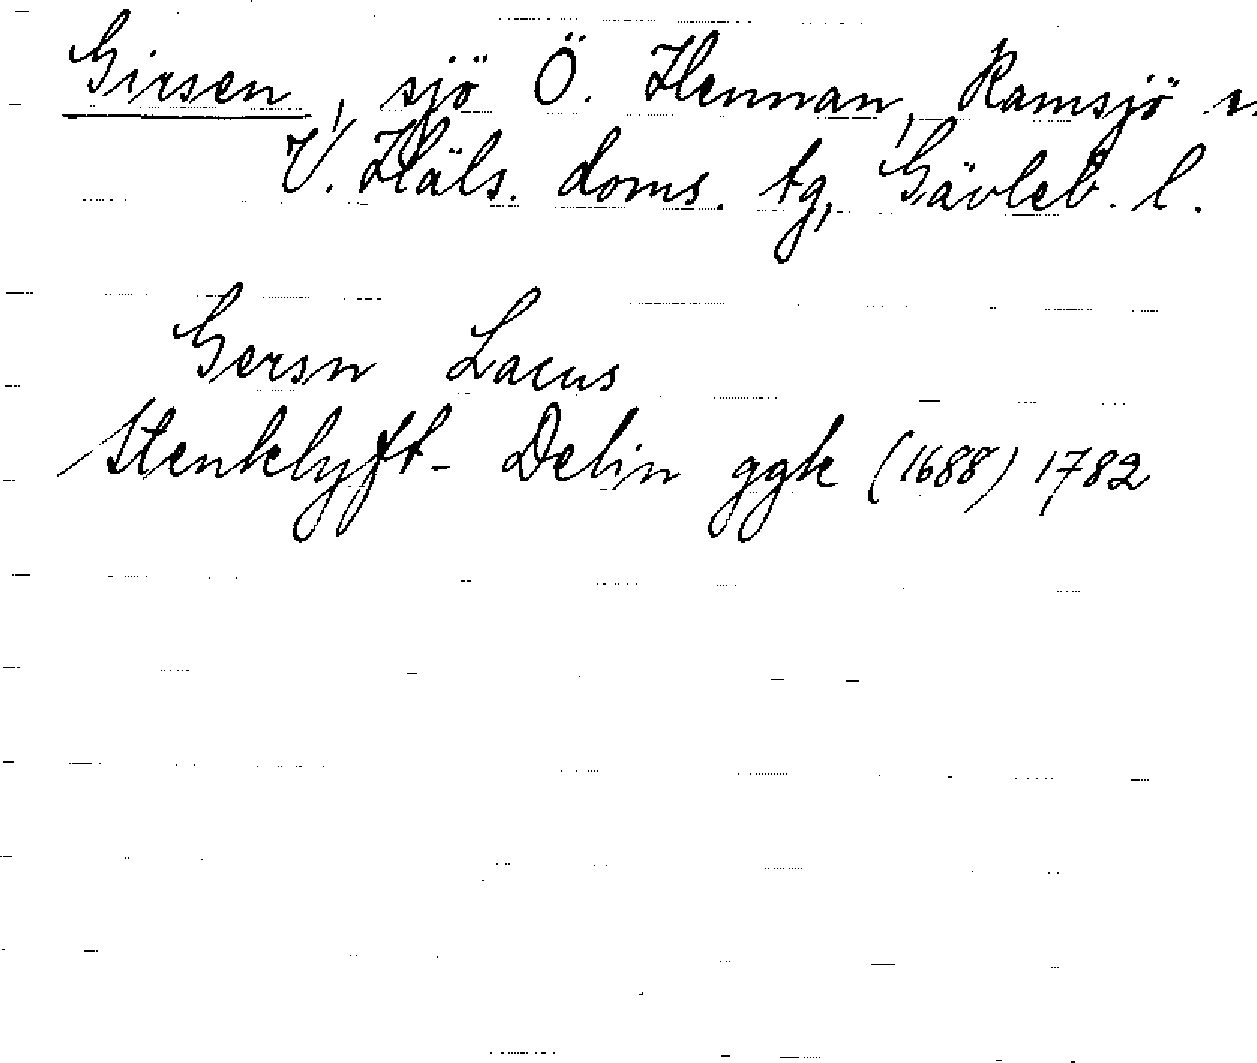 Girsen, sjö Ö. Hennan, Ramsjö
V. Häls. doms. tg, Gävleb. l.
Gersn Lacus
Stenklyft- Delin ggk (1688) 1782